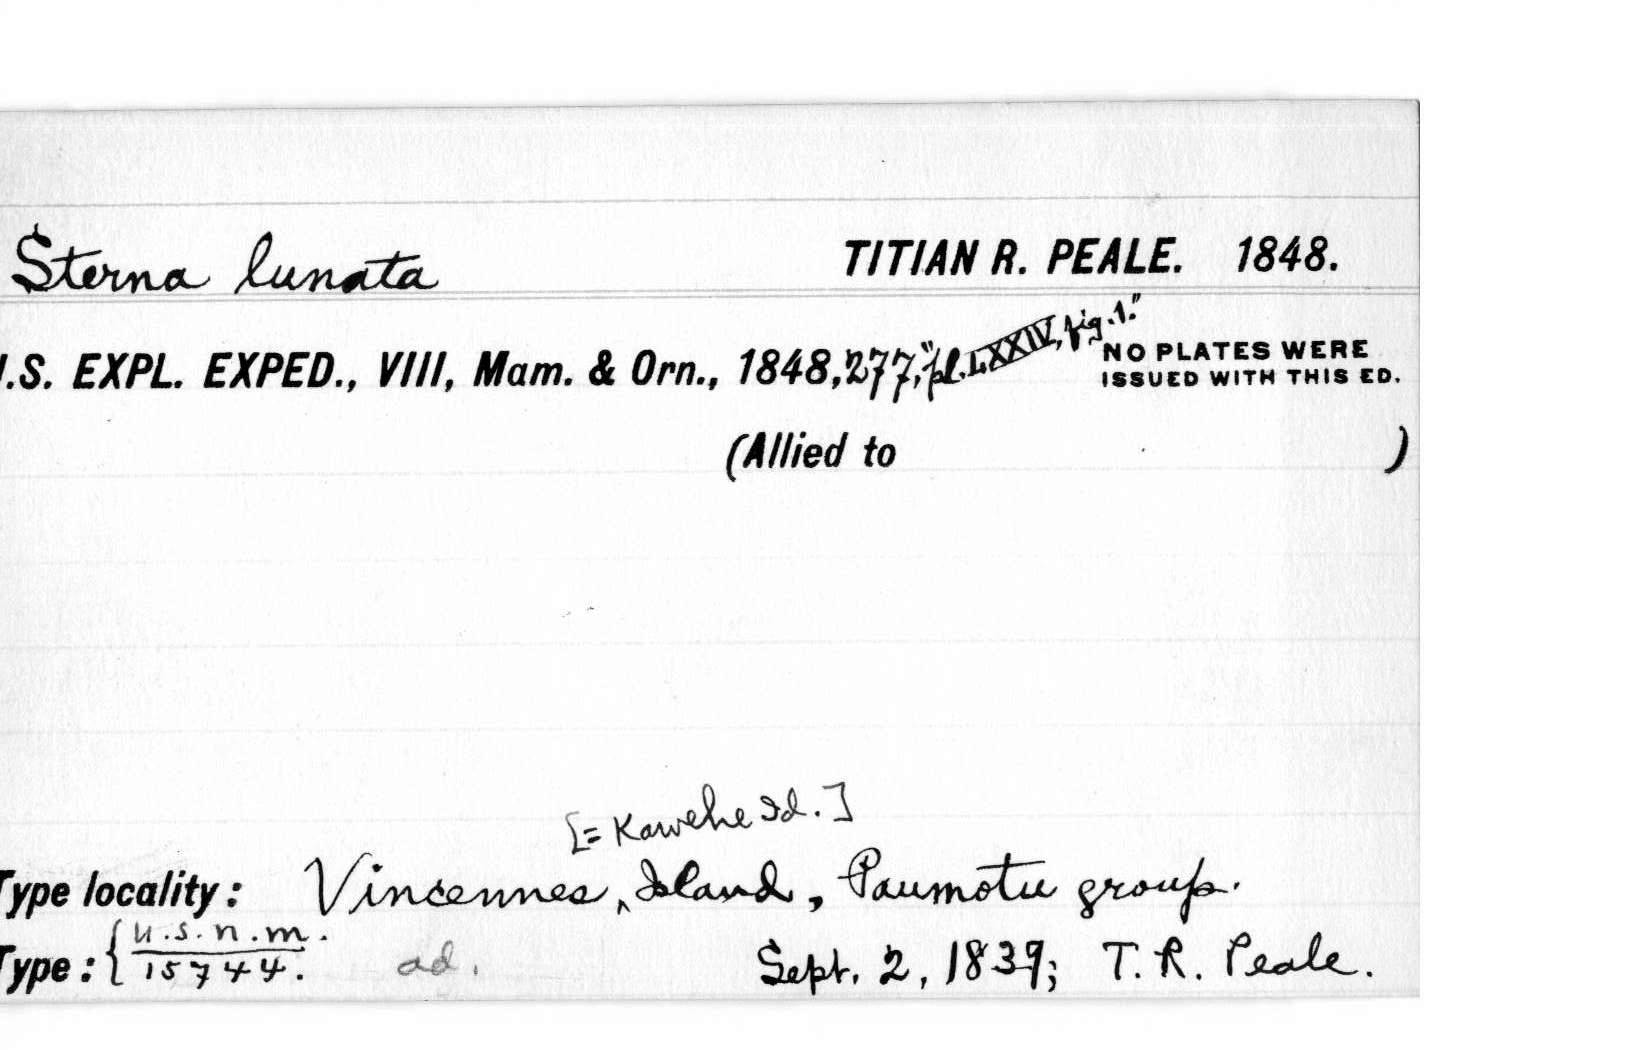 Sterna lunata TITIAN R. PEALE. 1848.
.S. EXPL. EXPED., VIII, Mam. & Orn., 1848, 277, "pl. LXXIV, fig. 1."
NO PLATES WERE
ISSUED WITH THIS ED.
(Allied to )
[= Kawehe Id.]
Type locality: Vincennes, Island, Paumotu group.
Type: { U.S.N.M. 
15744. ad. Sept. 2, 1839; T. R. Peale.